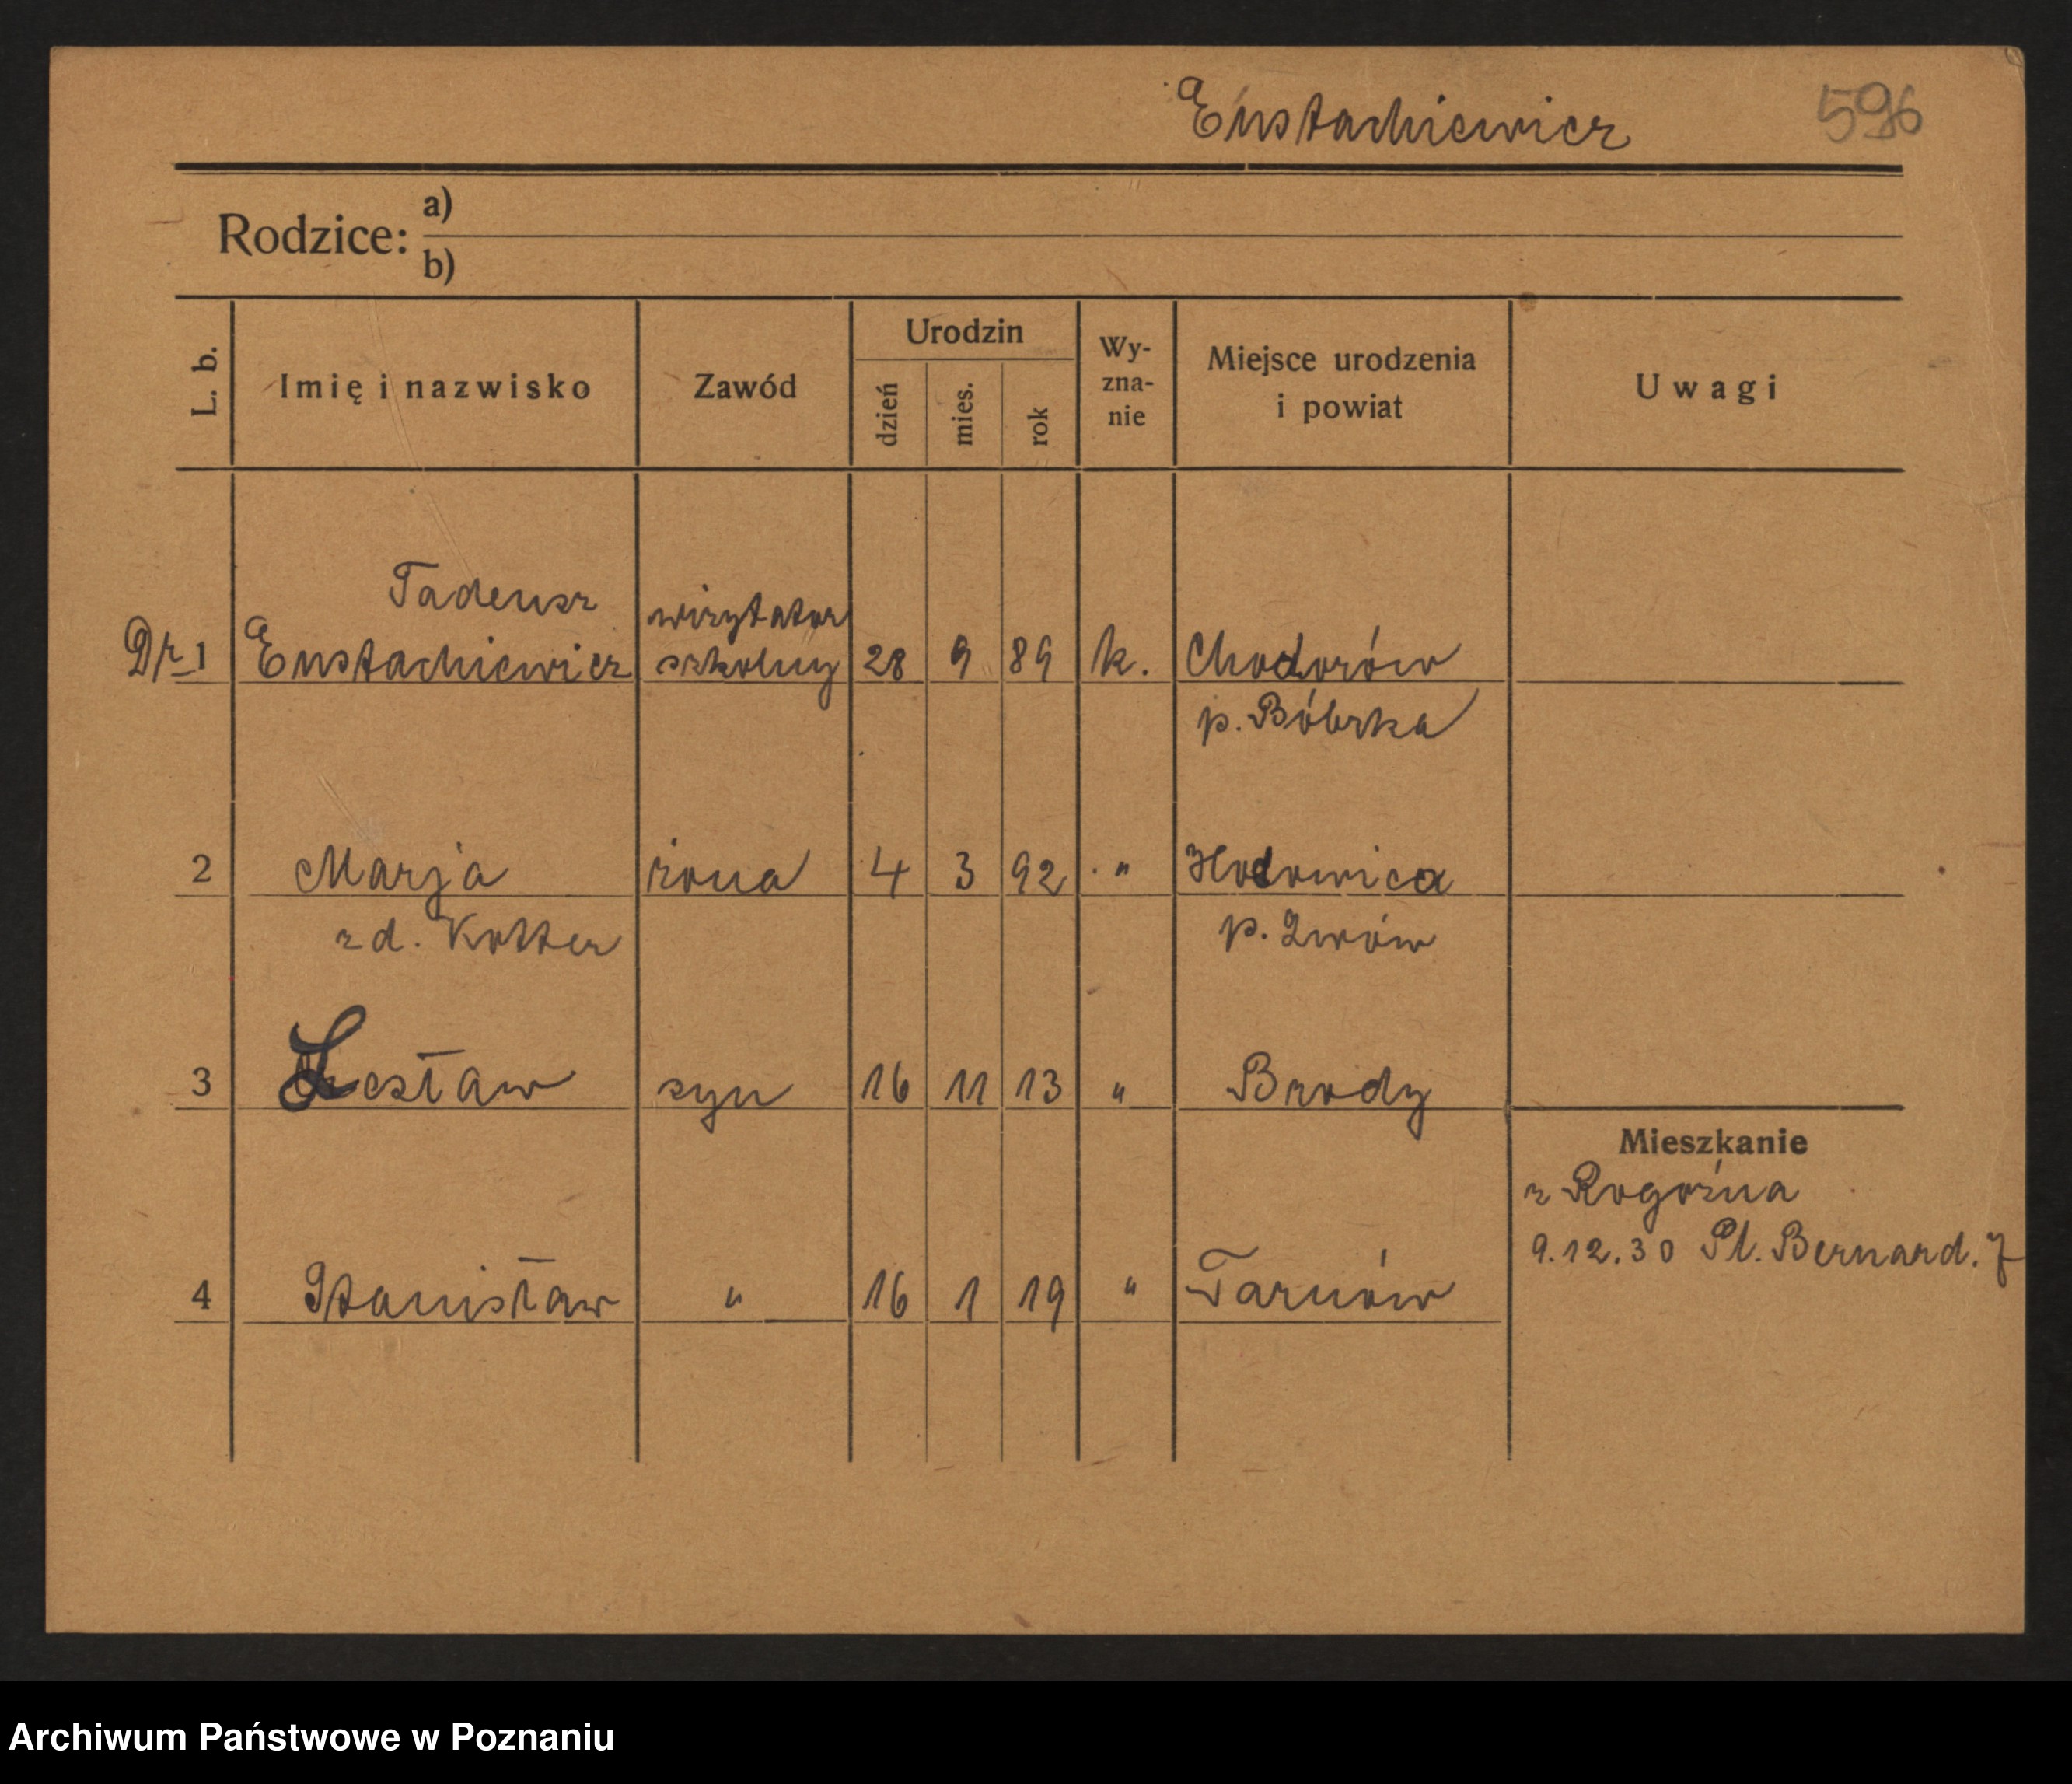 Eustachiewicz 596
Rodzice: a)
b)
L. b. Imię i nazwisko Zawód Urodzin dzień mies. rok Wy-zna-nie Miejsce urodzenia i powiat Uwagi
Tadeusz wizytator
Dr 1 Eustachiewicz szkolny 28 9 89 k. Chodorów
p. Bóbrka
2 Marja żona 4 3 92 " Hodowica
zd. Kotter p. Lwów
3 Lesław syn 16 11 13 " Brody
Mieszkanie
z Rogoźna
9.12.30 Pl. Bernard. 7
4 Stanisław " 16 1 19 " Tarnów
Archiwum Państwowe w Poznaniu